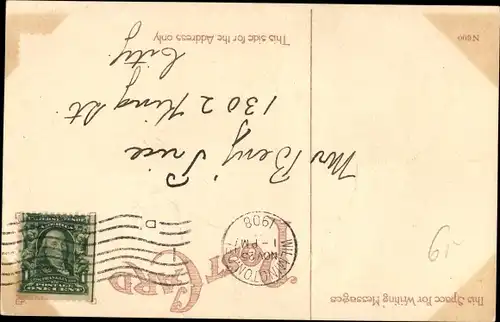 This Space for Writing Messages
POST CARD
WILMINGTON
NOV 23
1-PM
1908
D
POSTAGE
ONE CENT
Mr Benj Price
1302 King St.
City
This side for the Address only